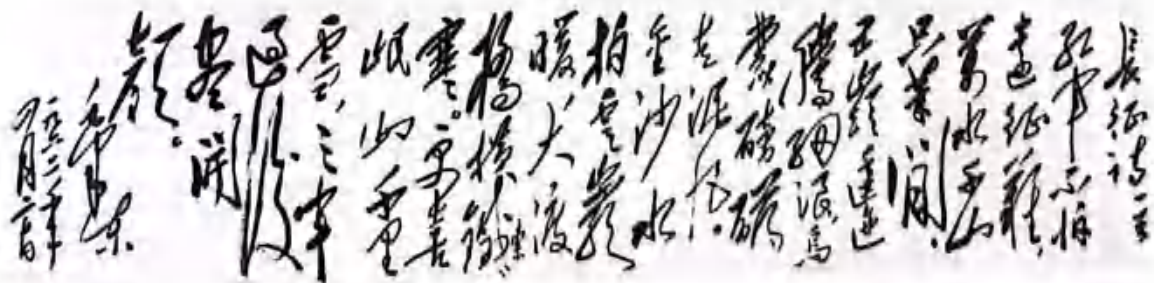 長征詩一首
紅軍不怕
遠征難，
萬水千山
只等閒。
五嶺逶迤
騰細浪，烏
蒙磅礴
走泥丸。
金沙水
拍雲巖
暖，大渡
橋橫鐵索
寒。更喜
岷山千里
雪，三軍
過後
盡開
顏。
毛澤東
一九六二年
四月廿日